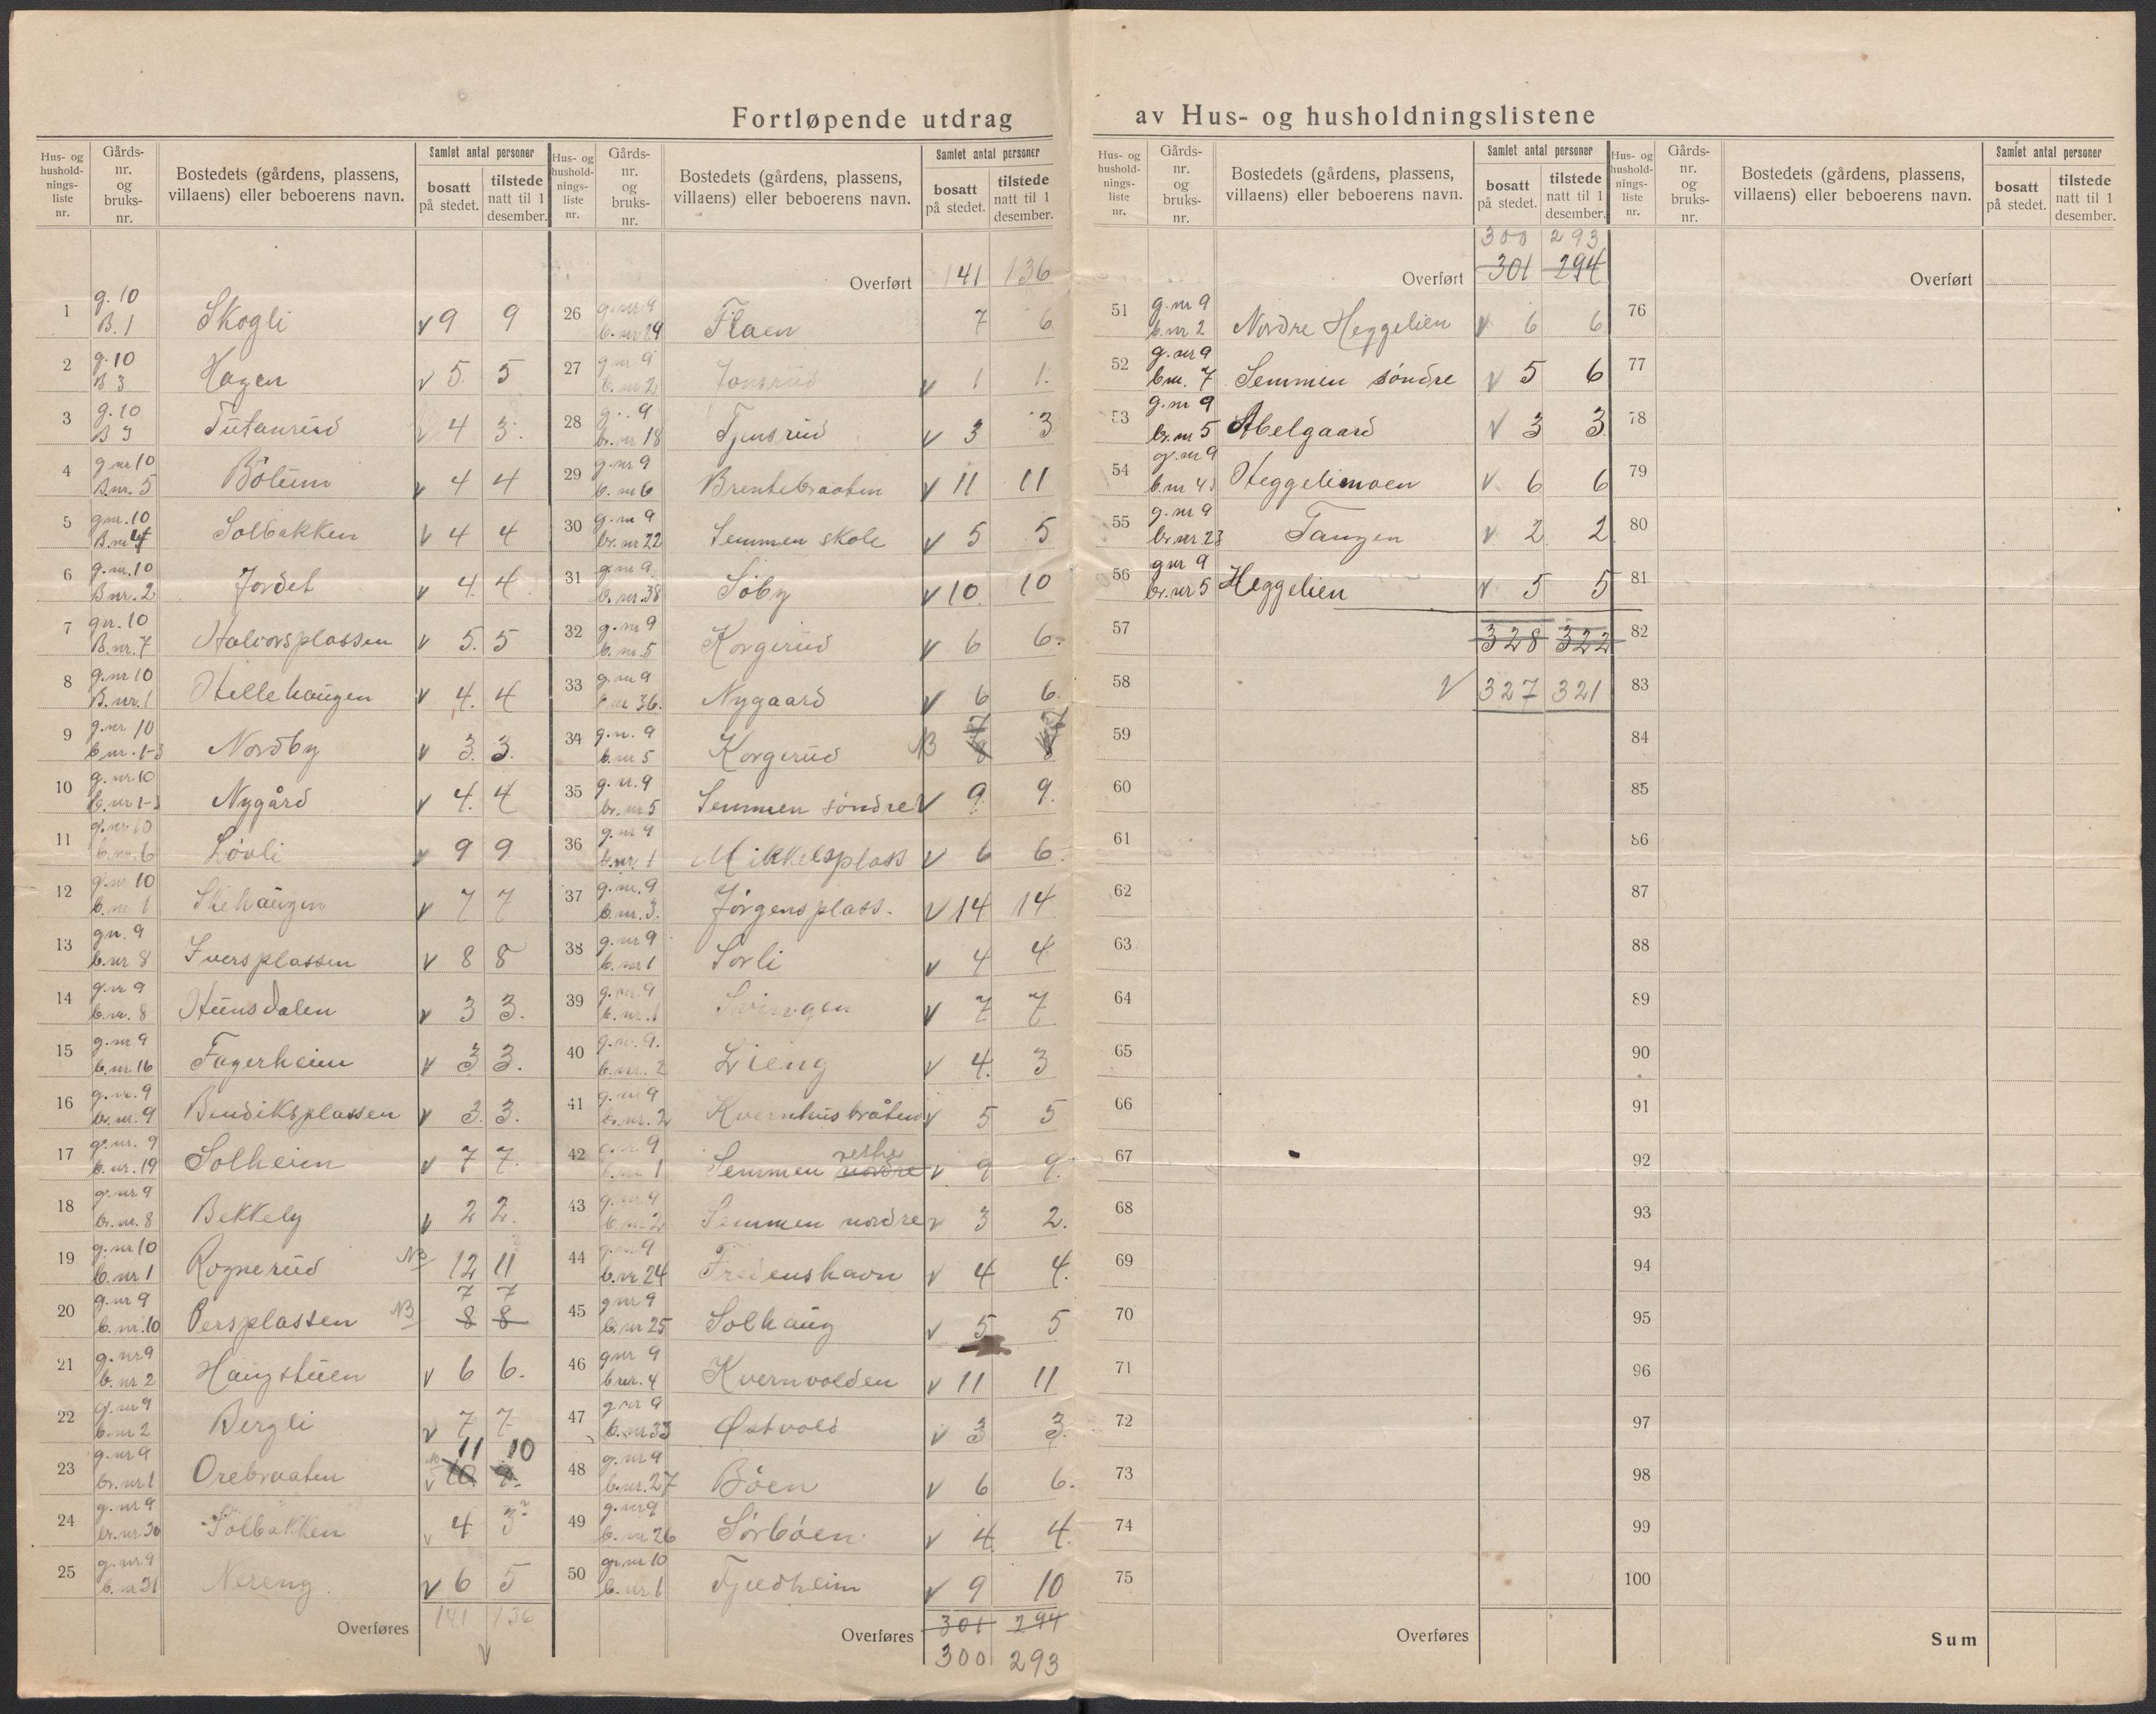 Fortløpende utdrag av Hus- og husholdningslistene
Hus- og hushold-nings-liste nr. | Gårds-nr. og bruks-nr. | Bostedets (gårdens, plassens, villaens) eller beboerens navn. | Samlet antal personer | bosatt på stedet. | tilstede natt til 1 desember.
1 g. 10 B. 1 Skogli v 9 9
2 g. 10 B 3 Hagen v 5 5
3 g. 10 B 3 Tutanrud v 4 3.
4 g nr 10 B.nr. 5 Bölum v 4 4
5 gnr. 10 B.nr 4 Solbakken v 4 4
6 g.nr. 10 B nr. 2 Jordet v 4. 4.
7 gnr. 10 B.nr. 7 Halvorsplassen v 5. 5
8 g.nr 10 B.nr. 1 Hellehaugen v 4. 4
9 g.nr 10 b.nr. 1-3 Nordby v 3. 3.
10 g.nr. 10 b.nr 1-3 Nygård v 4. 4
11 g.nr 10 b.nr. 6 Lövli v 9 9
12 g.nr 10 b.nr 1 Stehaugen v 7 7
13 gn. 9 b.nr 8 Iversplassen v 8 8
14 g.nr 9 b.nr. 8 Hunsdalen v 3 3.
15 g.nr 9 b.nr 16 Fagerheim v 3 3.
16 g.nr. 9 br.nr. 9 Bendiksplassen v 3. 3.
17 g.nr. 9 b.nr. 19 Solheim v 7 7.
18 g.nr 9 br.nr. 8 Bekkely v 2 2.
19 g.nr 10 b.nr 1 Rognerud NB 12 11
20 g.nr 9 b.nr. 10 Persplassen NB 7 7 8 8
21 g.nr 9 b.nr 2 Haugstuen v 6 6.
22 g.nr 9 b.nr 2 Bergli v 7 7
23 g.nr 9 br.nr 1 Orebraaten v 11 10 10 9
24 g.nr 9 br.nr 30 Solbakken v 4 3
25 g.nr 9 b.nr 31 Nereng. v 6 5
Overføres 141 136
Hus- og hushold-nings-liste nr. | Gårds-nr. og bruks-nr. | Bostedets (gårdens, plassens, villaens) eller beboerens navn. | Samlet antal personer | bosatt på stedet. | tilstede natt til 1 desember.
Overført 141 136
26 g.nr 9 b.nr 29 Flaen 7 6
27 g.nr 9 b.nr 2 Jonsrud v 1 1.
28 g.. 9 br.nr 18 Tjensrud v 3 3
29 g.nr 9 b.nr 6 Brentebraaten v 11 11
30 g.nr 9 br.nr 22 Semmen skole v 5 5
31 g.nr 9. b.nr. 38 Söby v 10 10
32 g.nr 9 b.nr. 5 Korgerud v 6 6.
33 g.nr 9 b.nr 36. Nygaard v 6 6.
34 g.n. 9 b.nr 5 Korgerud NB 7 7 8 8
35 g.n. 9 br.nr 5 Semmen söndre v 9 9.
36 g.nr 9 b.nr. 1 Mikkelsplass v 6 6.
37 g.nr. 9 b.nr. 3. Jörgensplass. v 14 14
38 g.nr 9 b.nr 1 Sörli v 4 4
39 g.nr. 9 b.nr. 1 Svingen v 7 7
40 g.nr. 9. b.nr. 2 Lieng v 4. 3
41 g.nr 9 b.nr. 2 Kvernhusbråten v 5 5
42 g.nr 9 b.nr 1 Semmen nordre vestre v. 9 9.
43 g.nr. 9 b.nr 2 Semmen nordre v 3 2.
44 g.nr 9 b.nr 24 Fredenshavn v 4 4.
45 gnr 9 b.nr 25 Solhaug v 5 5
46 gnr 9 b.nr. 4 Kvernvolden v 11 11
47 g.nr 9 b.nr 33 Østvold v 3 3.
48 g.nr 9 b.nr. 27 Böen v 6 6.
49 g.nr 9 b.nr 26 Sörböen. v 4 4.
50 gr.nr 10 b.nr 1 Tjuedheim v 9 10
Overføres 301 294
300 293
Hus- og hushold-nings-liste nr. | Gårds-nr. og bruks-nr. | Bostedets (gårdens, plassens, villaens) eller beboerens navn. | Samlet antal personer | bosatt på stedet. | tilstede natt til 1 desember.
300 293
Overført 301 294
51 g.nr 9 b.nr 2 Nordre Heggelien v 6 6
52 g.nr 9 b.nr. 7 Semmen söndre v 5 6
53 g.nr 9 br.nr 5 Abelgaard v 3 3
54 g.nr 9 b.nr 43 Heggelimoen v. 6 6
55 g.nr 9 br.nr 23 Tangen v 2 2
56 gnr 9 br.nr 5 Heggelien v 5 5
57 328 322
58 v 327 321
59
60
61
62
63
64
65
66
67
68
69
70
71
72
73
74
75
Overføres
Hus- og hushold-nings-liste nr. | Gårds-nr. og bruks-nr. | Bostedets (gårdens, plassens, villaens) eller beboerens navn. | Samlet antal personer | bosatt på stedet. | tilstede natt til 1 desember.
Overført
76
77
78
79
80
81
82
83
84
85
86
87
88
89
90
91
92
93
94
95
96
97
98
99
100
Sum